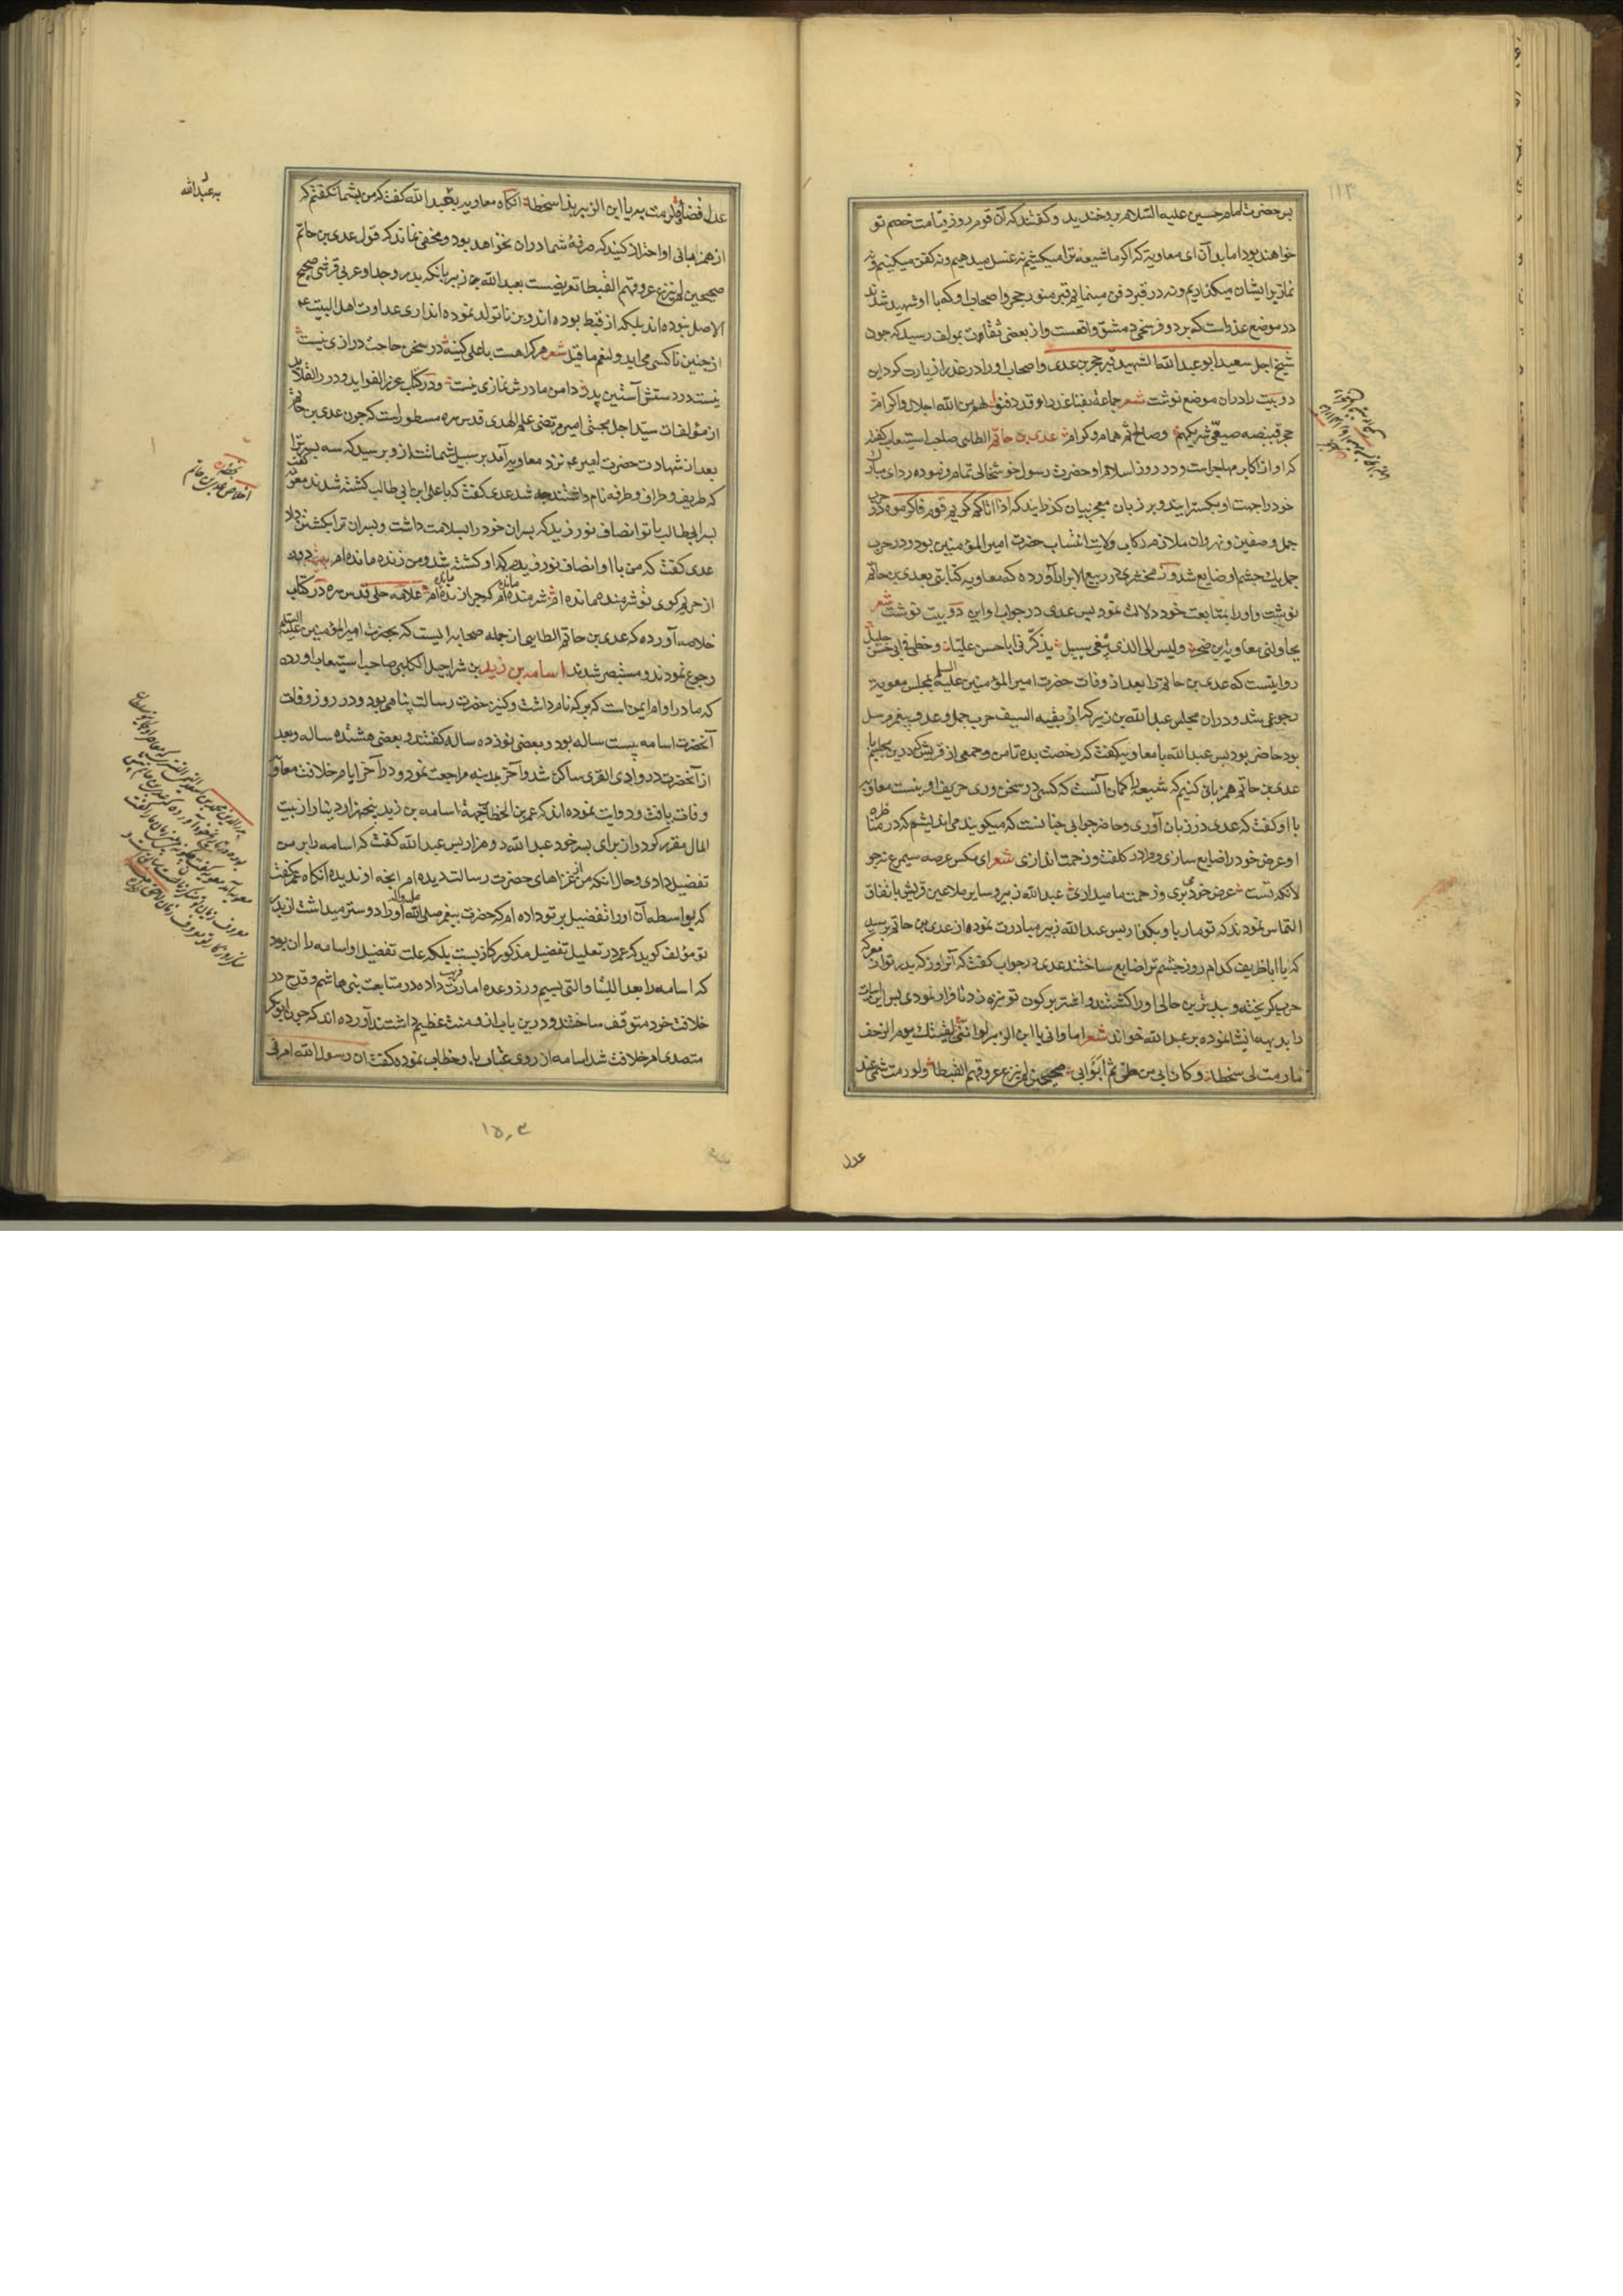 پس حضرت امام حسین علیه السلام برو خندید و کفتند که آن قوم در روز قیامت خصم تو
خواهند بود اما بدان ای معاویه که اکر ما شیعه ترا میکشیم نه غسل میدهیم و نه کفن میکنیم و نه
نماز برایشان میکذاریم و نه در قبر دفن مینماییم قبر منور حجر و اصحاب او که با او شهید شدند
در موضع عذراست که بر دو فرسخی دمشق واقعست و از بعضی ثقات بمولف رسید که چون
شیخ اجل سعید ابو عبدالله الشهید قبر حجر بن عدی و اصحاب او را در عذرا زیارت کرد این
دو بیت را در ان موضع نوشت شعر جماعة بفنا عذرا و قد دفنوا لهم من الله اجلال و اکرام
حجر قبیصه صیفی شریکهم و صالح ثم همام و کرام عدی بن حاتم الطایی صاحب استیعاب کفته
که او از اکابر مهاجر است و در روز اسلام او حضرت رسول خوشحالی تمام فرموده ردای مبارک
خود را جهت او بکسترانید و بر زبان معجز بیان کذرانید که اذا اتاکم کریم قوم فاکرموه در حرب
جمل و صفین و نهروان ملازم رکاب ولایت انتساب حضرت امیر المؤمنین بود و در حرب
جمل یک چشم او ضایع شد و زمخشری در ربیع الابرار آورده که معاویه کتابتی بعدی بن حاتم
نوشت و او را بمتابعت خود دلالت نمود پس عدی در جواب او این دو بیت نوشت شعر
یحاولنی معاویة بن صخر و لیس الی الذی یبغی سبیل یذکرنی اباحسن علیا و خطی فی ابی حسن جلیل
روایتست که عدی بن حاتم را بعد از وفات حضرت امیر المؤمنین علیه السلم بمجلس معویه
رجوعی شد و در ان مجلس عبدالله بن زبیر که از بقیه السیف حرب جمل و عدو پیغمبر مرسل
بود حاضر بود پس عبدالله با معاویه کفت که رخصت بده تا من و جمعی از قریش که درین مجلسیم با
عدی بن حاتم هم زبانی کنیم که شیعه را کمان آنست که کسی در سخن وری حریف او نیست معاویه
با او کفت که عدی در زبان آوری و حاضر جوابی چنانست که میکویند می اندیشم که در مناظره
او عرض خود را ضایع سازی و ما را در کلفت و زحمت اندازی شعر ای مکس عرصه سیمرغ نه جو
لانکه تست عرض خود میبری و زحمت ما میداری عبدالله زبیر و سایر ملاعین قریش باتفاق
التماس نمودند که تو ما را باو بکذار پس عبدالله زبیر مبادرت نموده از عدی بن حاتم پرسید
که یا اباظریف کدام روز چشم ترا ضایع ساختند عدی در جواب کفت که آنروز که پدر تو از معرکه
حرب کریخته و ببدترین حالی او را کشتند و اشتر بر کون تو نیزه زد تا فرار نمودی پس این ابیات
را بدیهه انشا نموده بر عبدالله خواند شعر اما و ابی یا ابن الزبیر لو اننی لقیتک یوم الزحف
ما رمت لی سخطا و کان ابی من طی ثم ابو ابی صحیحین لم ینزع عروقهم القبطا و لو رمت شتمی عند
عدل
عدل قضاؤه لرمت به یا ابن الزبیر بذا سخطا انکاه معاویه بعبدالله کفت که من بشما نکفتم که
از هم زبانی او احتراز کنید که صرفهٔ شما در ان نخواهد بود و مخفی نماند که قول عدی بن حاتم
صحیحین لم ینزع عروقهم القبطا تعریضست بعبدالله بن زبیر بانکه پدر و جد او عربی قرشی صحیح
الاصل نبوده اند بلکه از قبط بوده اند و بزنا تولد نموده اند آری عداوت اهل البیت ع
از چنین ناکسی می اید و لنعم ما قیل شعر هر کرا هست با علی کینه در سخن حاجت درازی نیست
نیست در دستش آستین پدر دامن مادرش نمازی نیست و در کتاب غرر الفواید و درر القلاید
از مؤلفات سید اجل مجتبی امیر مرتضی علم الهدی قدس سره مسطور است که چون عدی بن حاتم
بعد از شهادت حضرت امیر ع نزد معاویه آمد بر سبیل شماتت ازو پرسید که سه پسر ترا
که طریف و طراف و طرفه نام داشتند چه شد عدی کفت که با علی ابن ابی طالب کشته شدند معویه کفت
پسر ابی طالب با تو انصاف نورزید که پسران خود را بسلامت داشت و پسران ترا بکشتن داد
عدی کفت که من با او انصاف نورزیدم که او کشته شد و من زنده مانده ام بیت دیده
از حریم کوی تو شرمنده مانده ام شرمنده مانده ام که چرا زنده مانده ام علامه حلی قدس سره در کتاب
خلاصه آورده که عدی بن حاتم الطایی از جمله صحابه ایست که بحضرت امیر المؤمنین علیه السلم
رجوع نمودند و مستبصر شدند اسامه بن زید بن شراحیل الکلبی صاحب استیعاب اورده
که مادر او ام ایمن است که برکه نام داشت و کنیز حضرت رسالت پناهی بود و در روز وفات
آنحضرت اسامه بیست ساله بود و بعضی نوزده ساله کفتند و بعضی هشتده ساله و بعد
از آنحضرت در وادی القری ساکن شد و آخر بمدینه مراجعت نمود و در آخر ایام خلافت معاویه
وفات یافت و روایت نموده اند که عمر بن الخطاب جهة اسامه بن زید پنجهزار دینار از بیت
المال مقرر کرد و از برای پسر خود عبدالله دو هزار پس عبدالله کفت که اسامه را بر من
تفضیل دادی و حال انکه من از غزاهای حضرت رسالت دیده ام انچه او ندیده انکاه عمر کفت
که بواسطه آن او را تفضیل بر تو داده ام که حضرت پیغمبر صلی الله علیه و آله او را دوستر میداشت از پدر
تو مؤلف کوید که عمر در تعلیل تفضیل مذکور کاذبست بلکه علت تفضیل او اسامه را ان بود
که اسامه را بعد اللتیا و التی بسیم و زر و وعده امارت فریب داده در متابعت بنی هاشم و قدح در
خلافت خود متوقف ساختند و درین باب ازو منت عظیم داشتند آورده اند که چون ابوبکر
متصدی امر خلافت شد اسامه از روی عتاب با او خطاب نموده کفت ان رسول الله امرنی
به عبدالله